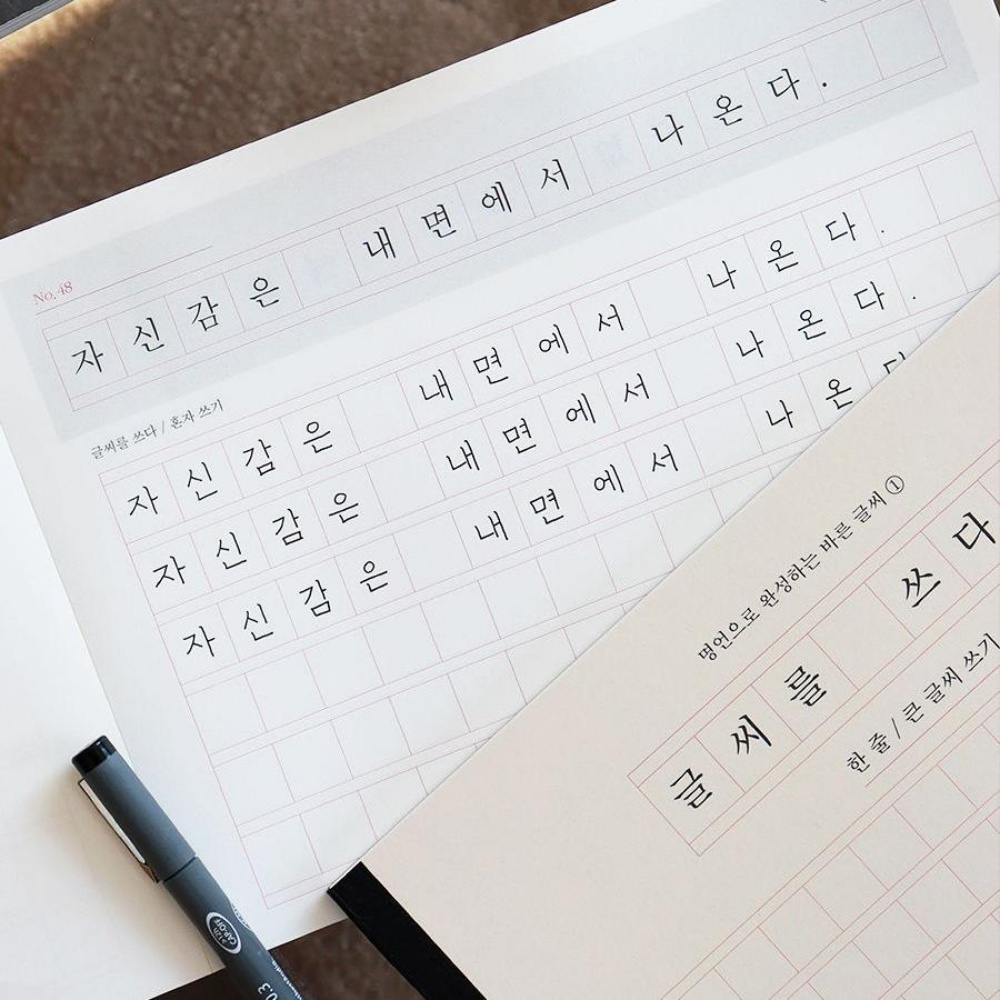 No. 48
자신감은 내면에서 나온다.
글씨를 쓰다 / 혼자 쓰기
자신감은 내면에서 나온다.
자신감은 내면에서 나온다.
자신감은 내면에서 나온다
명언으로 완성하는 바른 글씨 ①
글씨를 쓰다
한 줄 / 큰 글씨 쓰기
>12h
CAP-OFF
0.3